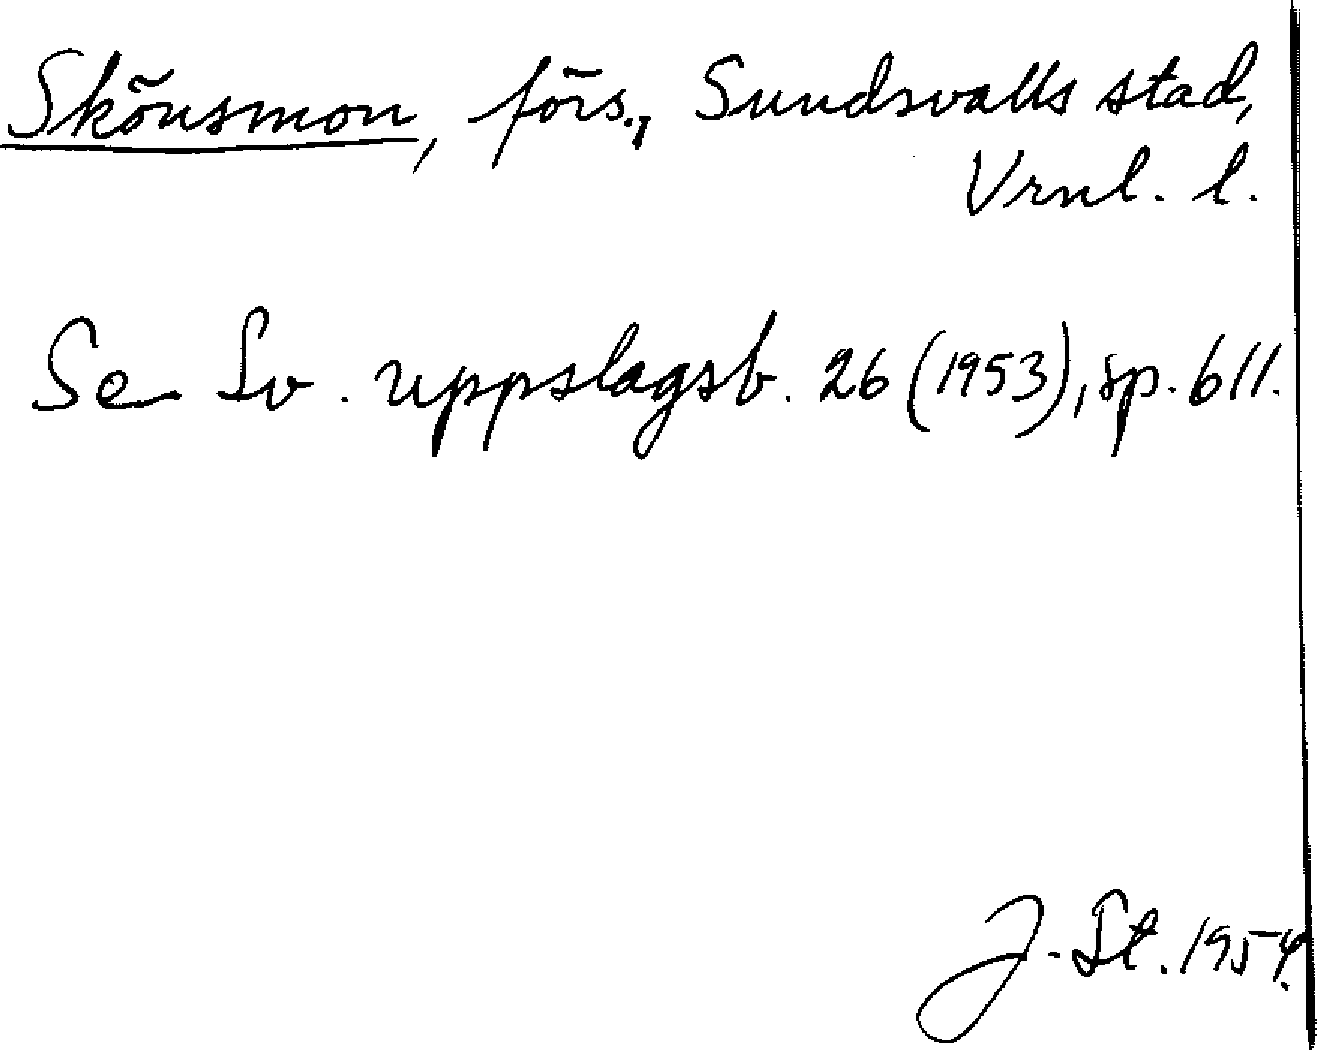 Skönsmon, förs., Sundsvalls stad,
Vrnl. l.
Se Sv. uppslagsb. 26 (1953), sp. 611.
J. St. 1954.